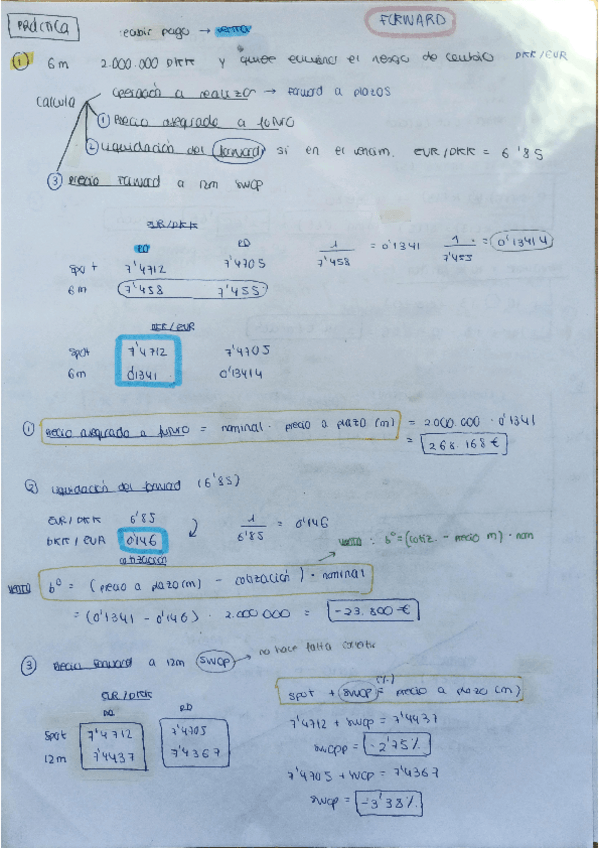 PRÁCTICA
recibir pago → venta
FORWARD
① 6m 2.000.000 DKK y quiere eliminar el riesgo de cambio DKK/EUR
calcula
operación a realizar → forward a plazos
① Precio asegurado a futuro
② Liquidación del forward si en el vencim. EUR/DKK = 6'85
③ precio forward a 12m swap
EUR/DKK
PD
spot 7'4712 7'4705
6m 7'458 7'455
1/7'458 = 0'1341 1/7'455 = 0'13414
DKK/EUR
spot 7'4712 7'4705
6m 0'1341 0'13414
① Precio asegurado a futuro = nominal · precio a plazo (m) = 2.000.000 · 0'1341
= 268.168€
② Liquidación del forward (6'85)
EUR/DKK 6'85
DKK/EUR 0'146
cotización
1/6'85 = 0'146
venta : bº = (cotiz. - precio m) · nom
venta bº = (precio a plazo (m) - cotización) · nominal
= (0'1341 - 0'146) · 2.000.000 = -23.800€
③ Precio forward a 12m swap → no hace falta
EUR/DKK
PD
spot 7'4712 7'4705
12m 7'4437 7'4367
(%)
spot + swap = precio a plazo (m)
7'4712 + swap = 7'4437
swap = -2'75%
7'4705 + swap = 7'4367
swap = -3'38%